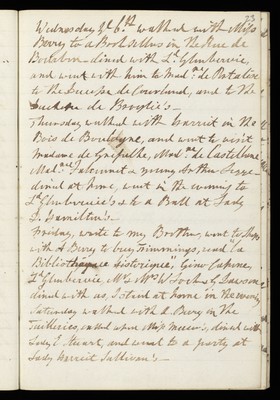 73
Wednesday ye 6th walked with Miss
Berry to a Booksellers in the Rue de
Bourbon – dined with Ld Glenbervie,
and went with him to Madme de
to the Duchesse de Courlande, and to the
de Broglie's –
Thursday walked with Harriet in the
Bois de Boulogne, and went to visit
Madame de Greffulhe, Madme de Castellane
Made Falconnet &
dined at home, went in the evening to
Ld Glenbervie's & to a Ball at Lady
Hamilton's –
Friday, wrote to my Brother, went to Shops
with A. Berry to buy Trimmings, and "La
Bibliothèque historique", Gino Capponi,
Ld Glenbervie, Mr & Mrs W. Locke, & Dawson
dined with us, I staid at home in the evening
Saturday walked with A. Berry in the
Tuilleries, called upon Miss Mercer, dined with
Lady E. Stuart, and went to a party at
Lady Harriet Sullivan's –